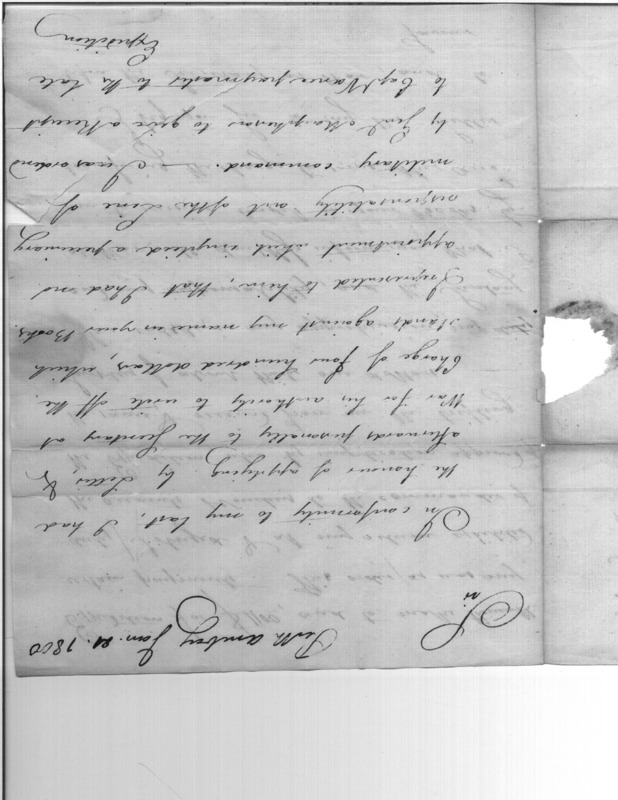 Perth Amboy Jan. 21. 1800
Sir
In conformity to my last, I had
the honour of applying by Letter, &
afterwards personally to the Secretary at
War for his authority to write off the
Charge of four hundred dollars, which
stands against my name in your Books.
I represented to him, that I had no
appointment which implied a pecuniary
responsibility out of the Line of
military command. I was ordered
by Genl Macpherson to give a receipt
to Capt Vance paymaster to the late
Expedition